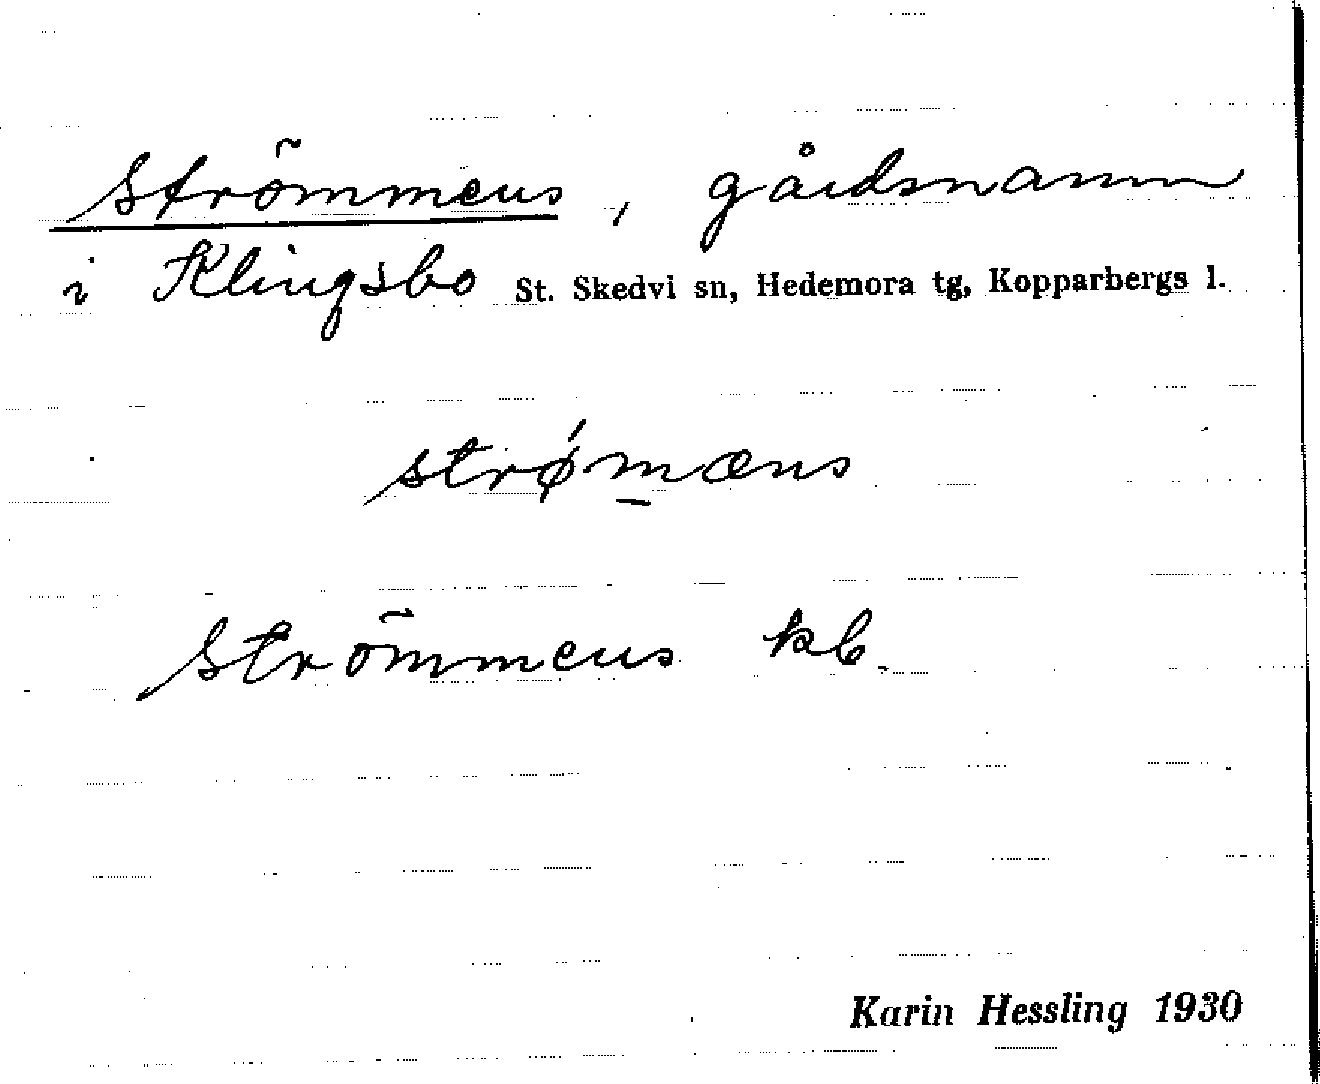 Strömmens, gårdsnamn
i Klingsbo St. Skedvi sn, Hedemora tg, Kopparbergs l.
strǿm̲æns
Strömmens kb.
Karin Hessling 1930